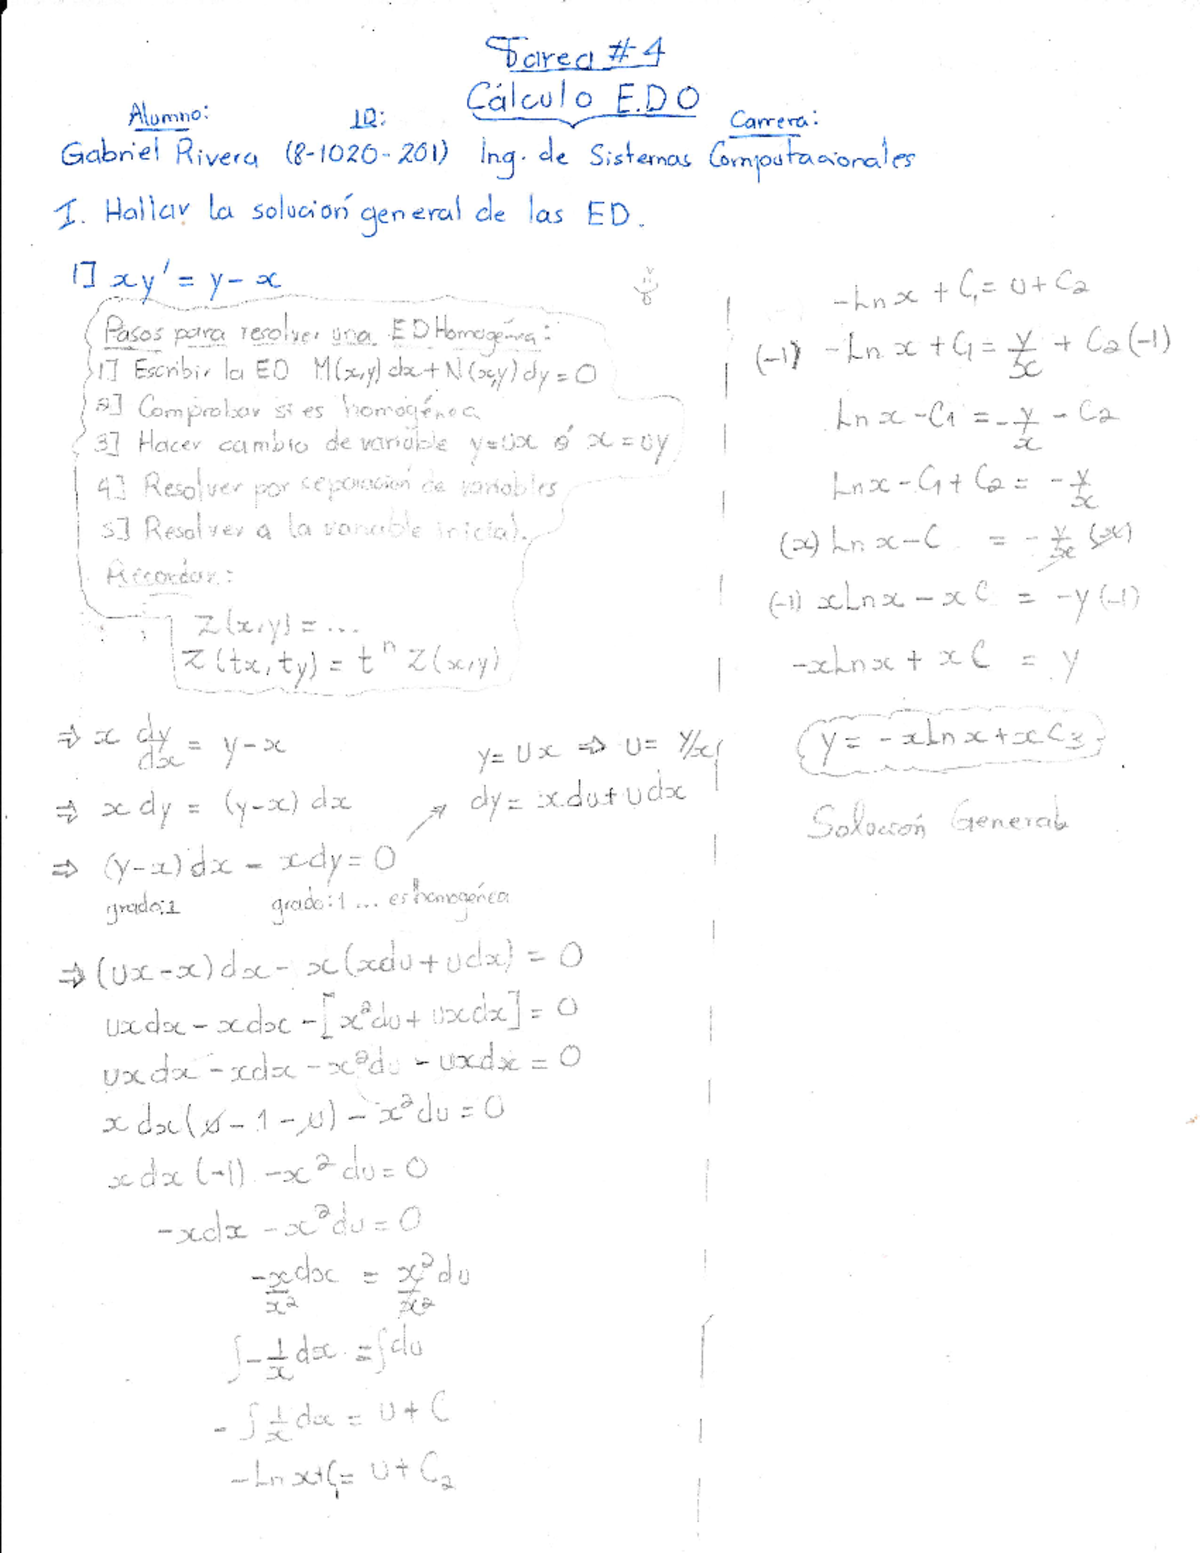 Tarea #4
Cálculo E.D O
Alumno: ID: Carrera:
Gabriel Rivera (8-1020-201) Ing. de Sistemas Computacionales
I. Hallar la solución general de las ED.
1] xy' = y - x
Pasos para resolver una ED Homogénea:
1] Escribir la ED M(x,y)dx + N(x,y)dy = 0
2] Comprobar si es homogénea
3] Hacer cambio de variable y=ux ó x=uy
4] Resolver por separación de variables
5] Resolver a la variable inicial.
Recordar:
Z(x,y) = ...
Z(tx, ty) = t^n Z(x,y)
⇒ x dy/dx = y-x
y= Ux ⇒ U= y/x
⇒ x dy = (y-x) dx
dy = xdu + udx
⇒ (y-x)dx - xdy = 0
grado:1 grado:1 ... es homogénea
⇒ (Ux-x)dx - x(xdu+udx) = 0
uxdx - xdx - [x²du + uxdx] = 0
uxdx - xdx - x²du - uxdx = 0
x dx(u - 1 - u) - x²du = 0
xdx(-1) - x²du = 0
-xdx - x²du = 0
-xdx/x² = x²du/x²
∫-1/x dx = ∫du
-∫1/x dx = U + C
-Ln x+C₁= U + C₂
-Ln x + C₁ = U + C₂
(-1) -Ln x + C₁ = y/x + C₂ (-1)
Ln x - C1 = -y/x - C₂
Ln x - C₁ + C₂ = -y/x
(x) Ln x - C = -y/x (x)
(-1) xLn x - xC = -y (-1)
-xLn x + xC = y
y = -xLn x + xC₃
Solución General